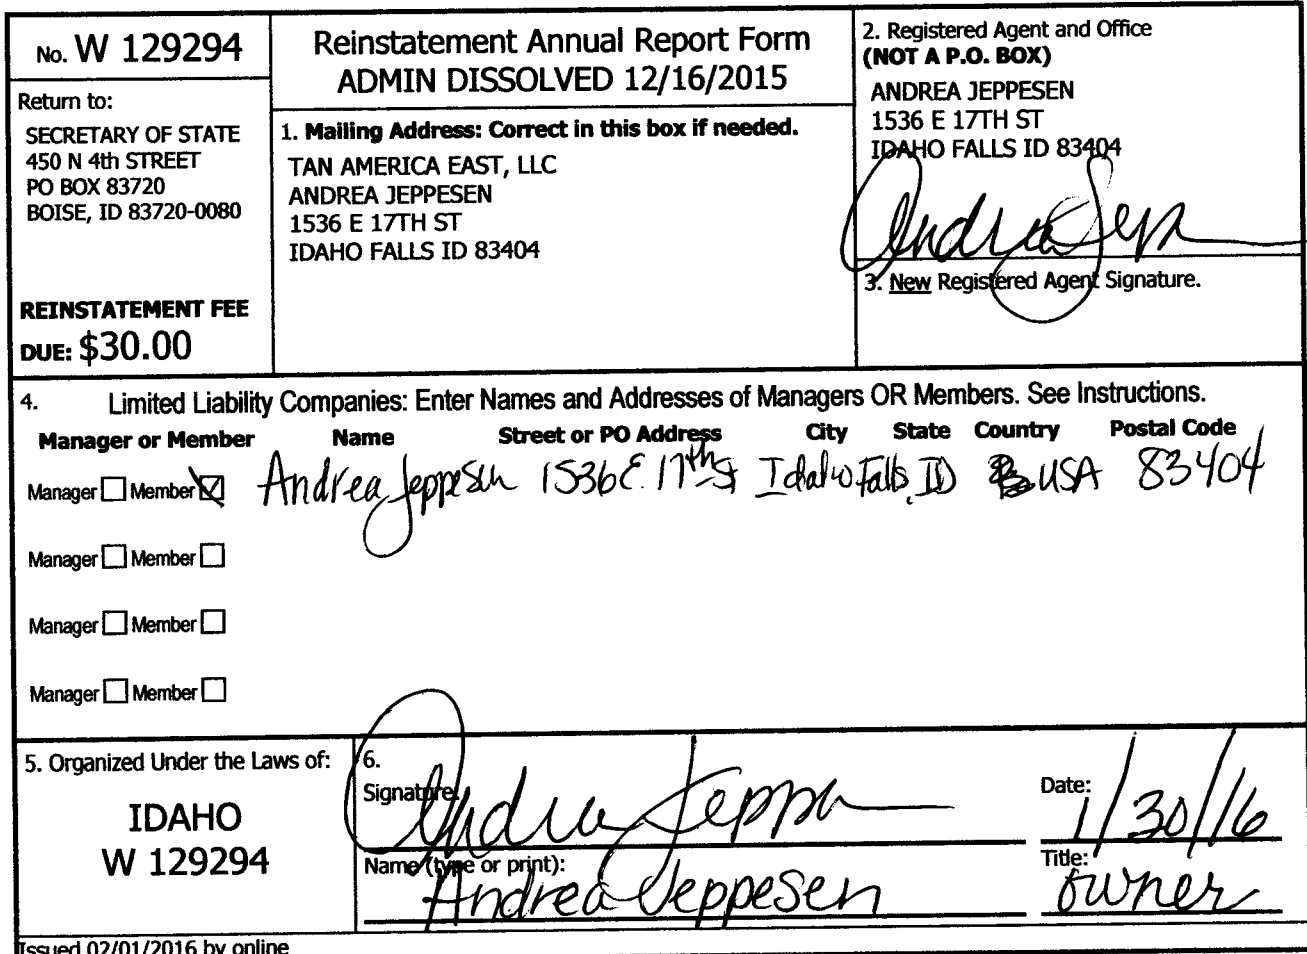 No. W 129294
Return to:
SECRETARY OF STATE
450 N 4th STREET
PO BOX 83720
BOISE, ID 83720-0080
REINSTATEMENT FEE
DUE: $30.00
Reinstatement Annual Report Form
ADMIN DISSOLVED 12/16/2015
1. Mailing Address: Correct in this box if needed.
TAN AMERICA EAST, LLC
ANDREA JEPPESEN
1536 E 17TH ST
IDAHO FALLS ID 83404
2. Registered Agent and Office
(NOT A P.O. BOX)
ANDREA JEPPESEN
1536 E 17TH ST
IDAHO FALLS ID 83404
Andrea Jepp
3. New Registered Agent Signature.
4. Limited Liability Companies: Enter Names and Addresses of Managers OR Members. See Instructions.
Manager or Member Name Street or PO Address City State Country Postal Code
Manager Member Andrea Jeppesen 1536 E. 17th St Idaho Falls, ID USA 83404
Manager Member
Manager Member
Manager Member
5. Organized Under the Laws of:
IDAHO
W 129294
6.
Signature: Andrea Jeppsn
Date: 1/30/16
Name (type or print):
Andrea Jeppesen
Title:
owner
Issued 02/01/2016 by online